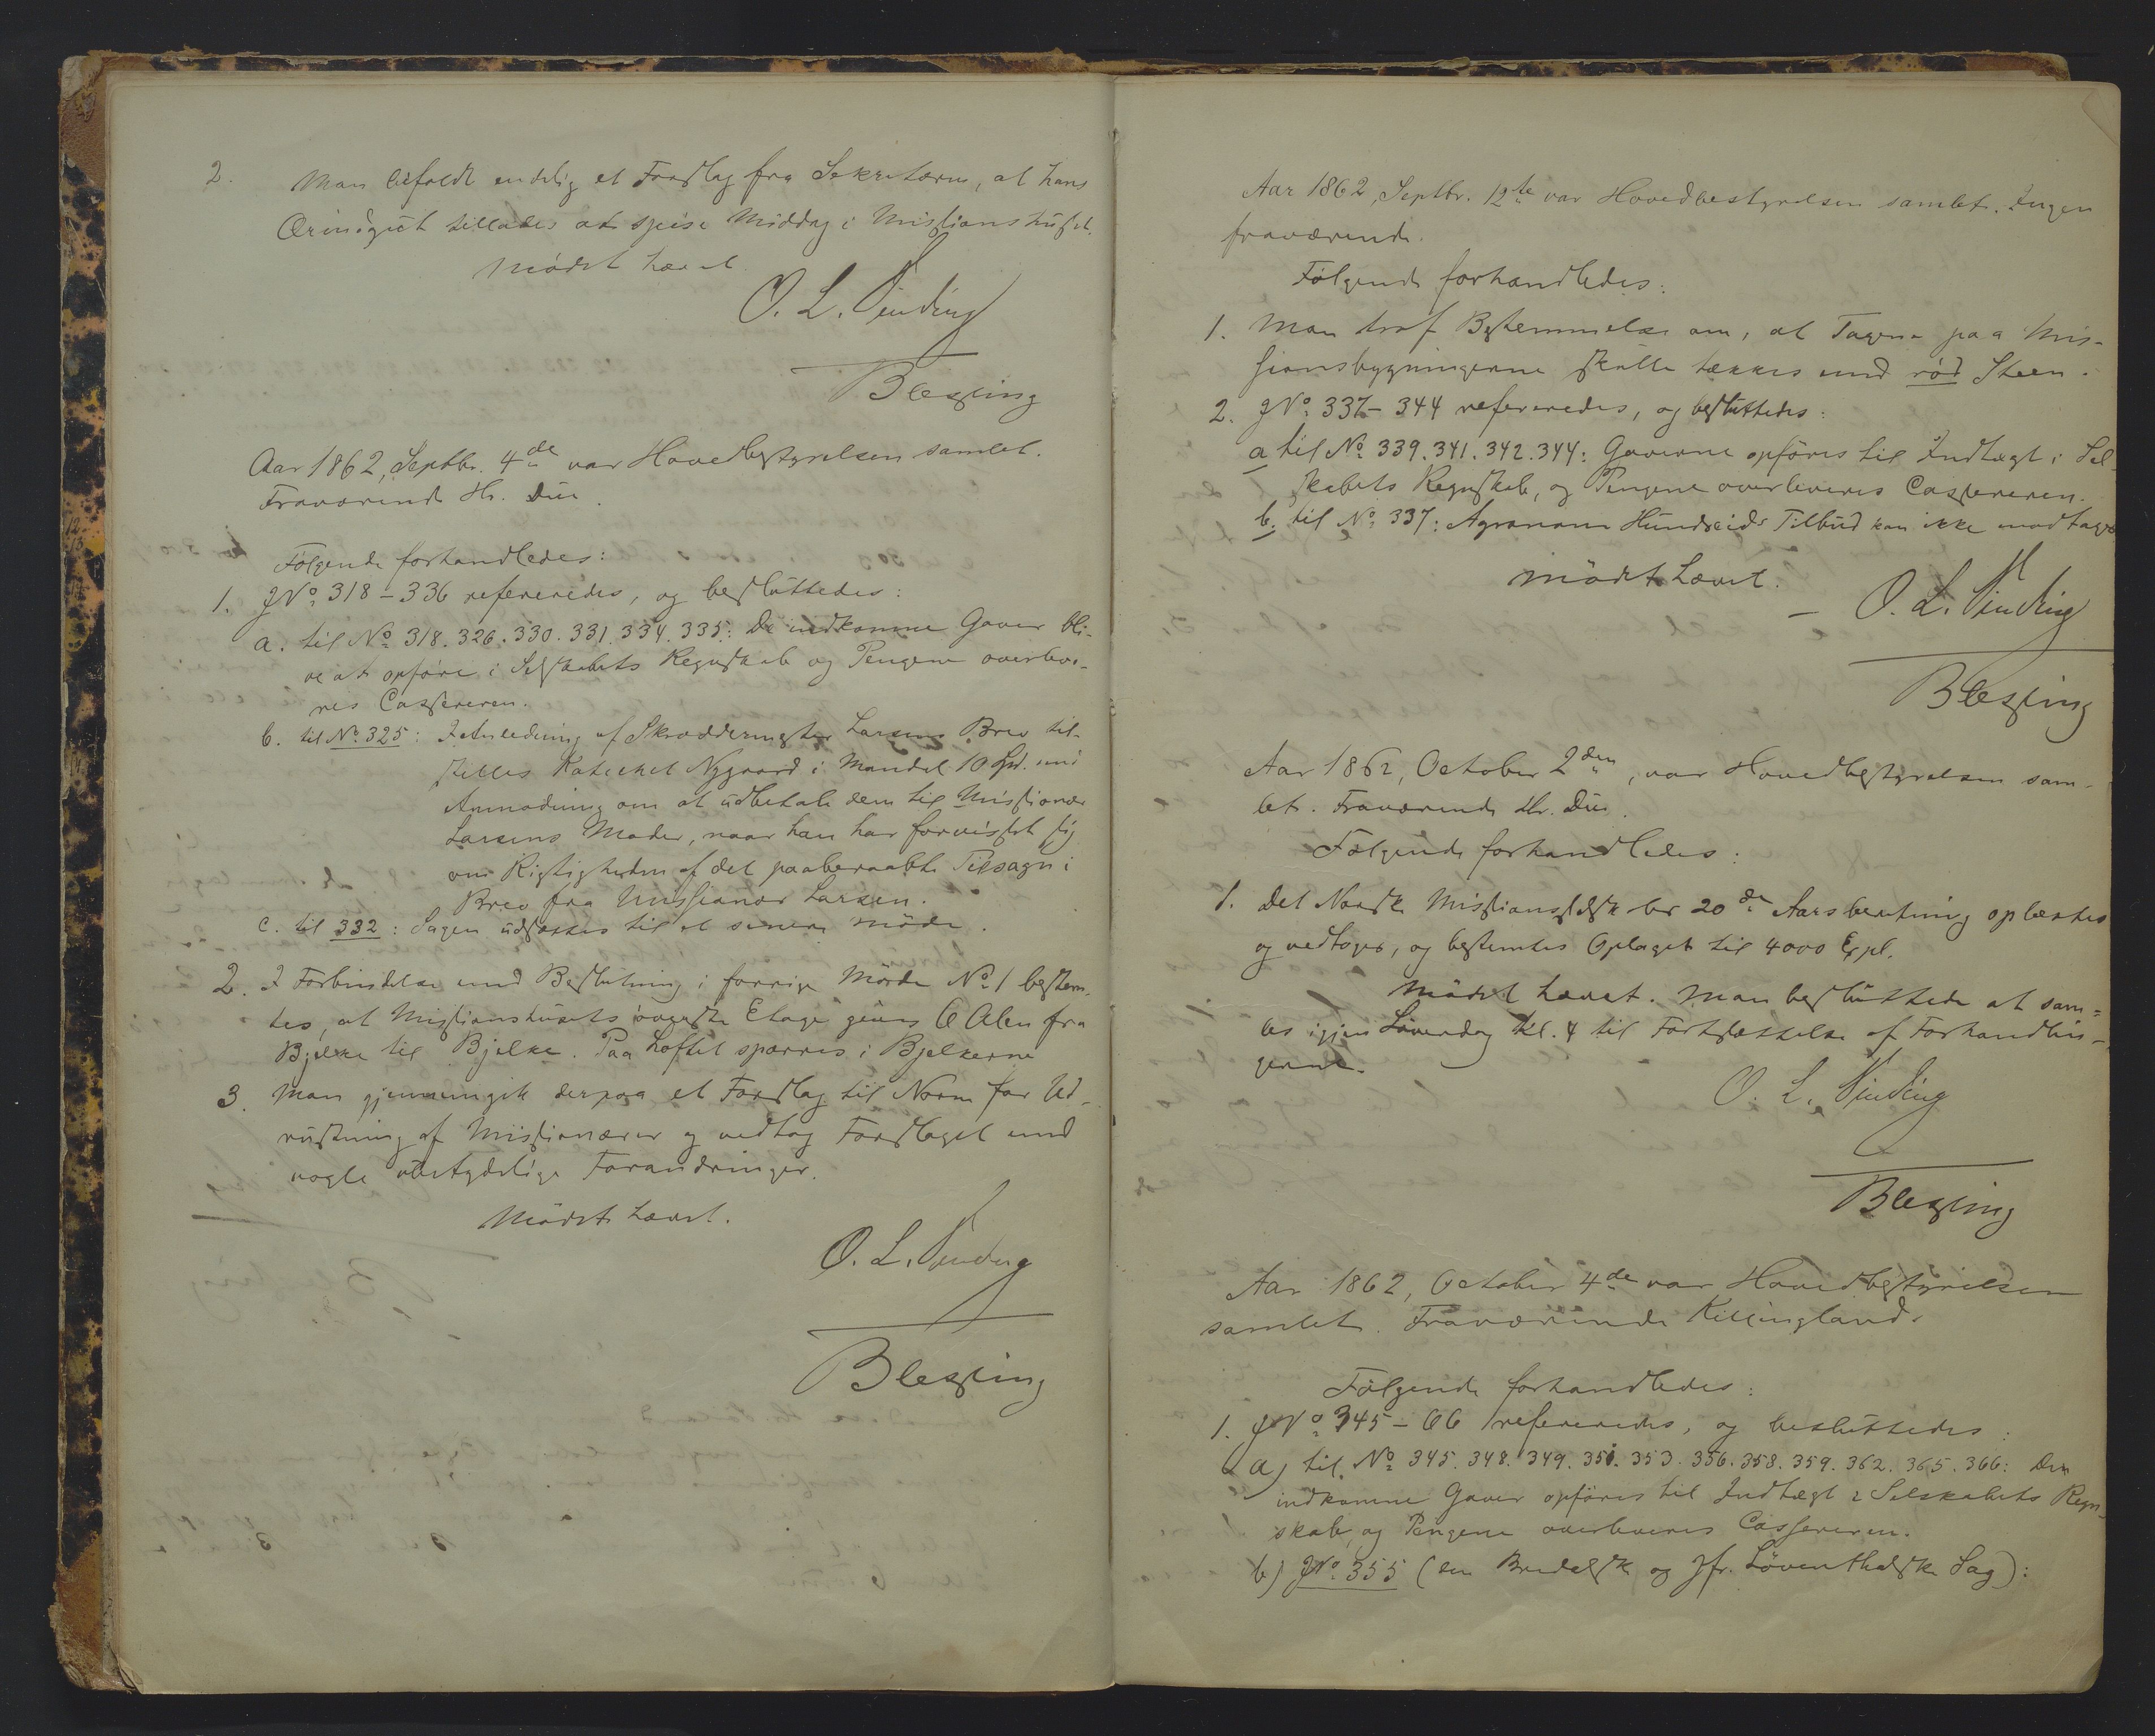 2. Man bifaldt endelig et Forslag fra Sekretæren, at hans
tillades at spise Middag i Missionshuset.
Mödet hævet
O. L. Sinding
Blessing
Aar 1862, Septbr. 4de var Hovedbestyrelsen samlet.
Fraværende Hr. Due.
Følgende forhandledes:
1. JNo 318-336 refereredes, og besluttedes:
a. til No 318. 326. 330. 331. 334. 335: De indkomne Gaver bli-
ve at opføre i Selskabets Regnskab og Pengene overleve-
res Cassereren.
b. til No. 325: I Anledning af Skræddermester Larsens Brev til-
stilles Katechet Nygaard i Mandal 10 Spd. med
Anmodning om at udbetale dem til Missionær
Larsens Moder, naar han har forvisset sig
om Rigtigheden af det paaberaabte Tilsagn i
Brev fra Missionær Larsen.
c. til 332: Sagen udsættes til et senere Möde.
2. I Forbindelse med Beslutning i forrige Möde No 1 bestem-
tes, at Missionshusets øverste Etage gives 6 Alen fra
Bjelke til Bjelke. Paa Loftet sparres i Bjelkerne
3. Man gjennemgik derpaa et Forslag til Norm for Ud-
rustning af Missionærer og vedtog Forslaget med
nogle ubetydelige Forandringer.
Mödet hævet.
O. L. Sinding
Blessing
Aar 1862, Septbr. 12te var Hovedbestyrelsen samlet. Ingen
fraværende.
Følgende forhandledes:
1. Man traf Bestemmelse om, at Tagene paa Mis-
sionsbygningerne skulle tækkes med röd Steen.
2. JNo 337-344 refereredes, og besluttedes:
a til No 339. 341. 342. 344: Gaverne opföres til Indtægt i Sel-
skabets Regnskab, og Pengene overleveres Cassereren.
b. til No. 337: Agronom Hundseids Tilbud kan ikke modtages
Mödet hævet.
O. L. Sinding
Blessing
Aar 1862, October 2den, var Hovedbestyrelsen sam-
let. Fraværende Hr. Due.
Følgende forhandledes:
1. Det Norske Missionsselskabs 20de Aarsberetning oplæstes
og vedtoges, og bestemtes Oplaget til 4000 Expl.
Mödet hævet. Man besluttede at sam=
les igjen Löverdag Kl. 4 til Fortsættelse af Forhandlin-
gerne.
O. L. Sinding
Blessing
Aar 1862, October 4de var Hovedbestyrelsen
samlet. Fraværende Kiellingland.
Følgende forhandledes:
1. JNo 345-66 refereredes, og besluttedes:
a) til No 345. 348. 349. 351. 353. 356. 358. 359. 362. 365. 366: De
indkomne Gaver opföres til Indtægt i Selskabets Regn-
skab, og Pengene overleveres Cassereren.
b) JNo. 355 (den Bredalske og Jfr. Löventhalske Sag):